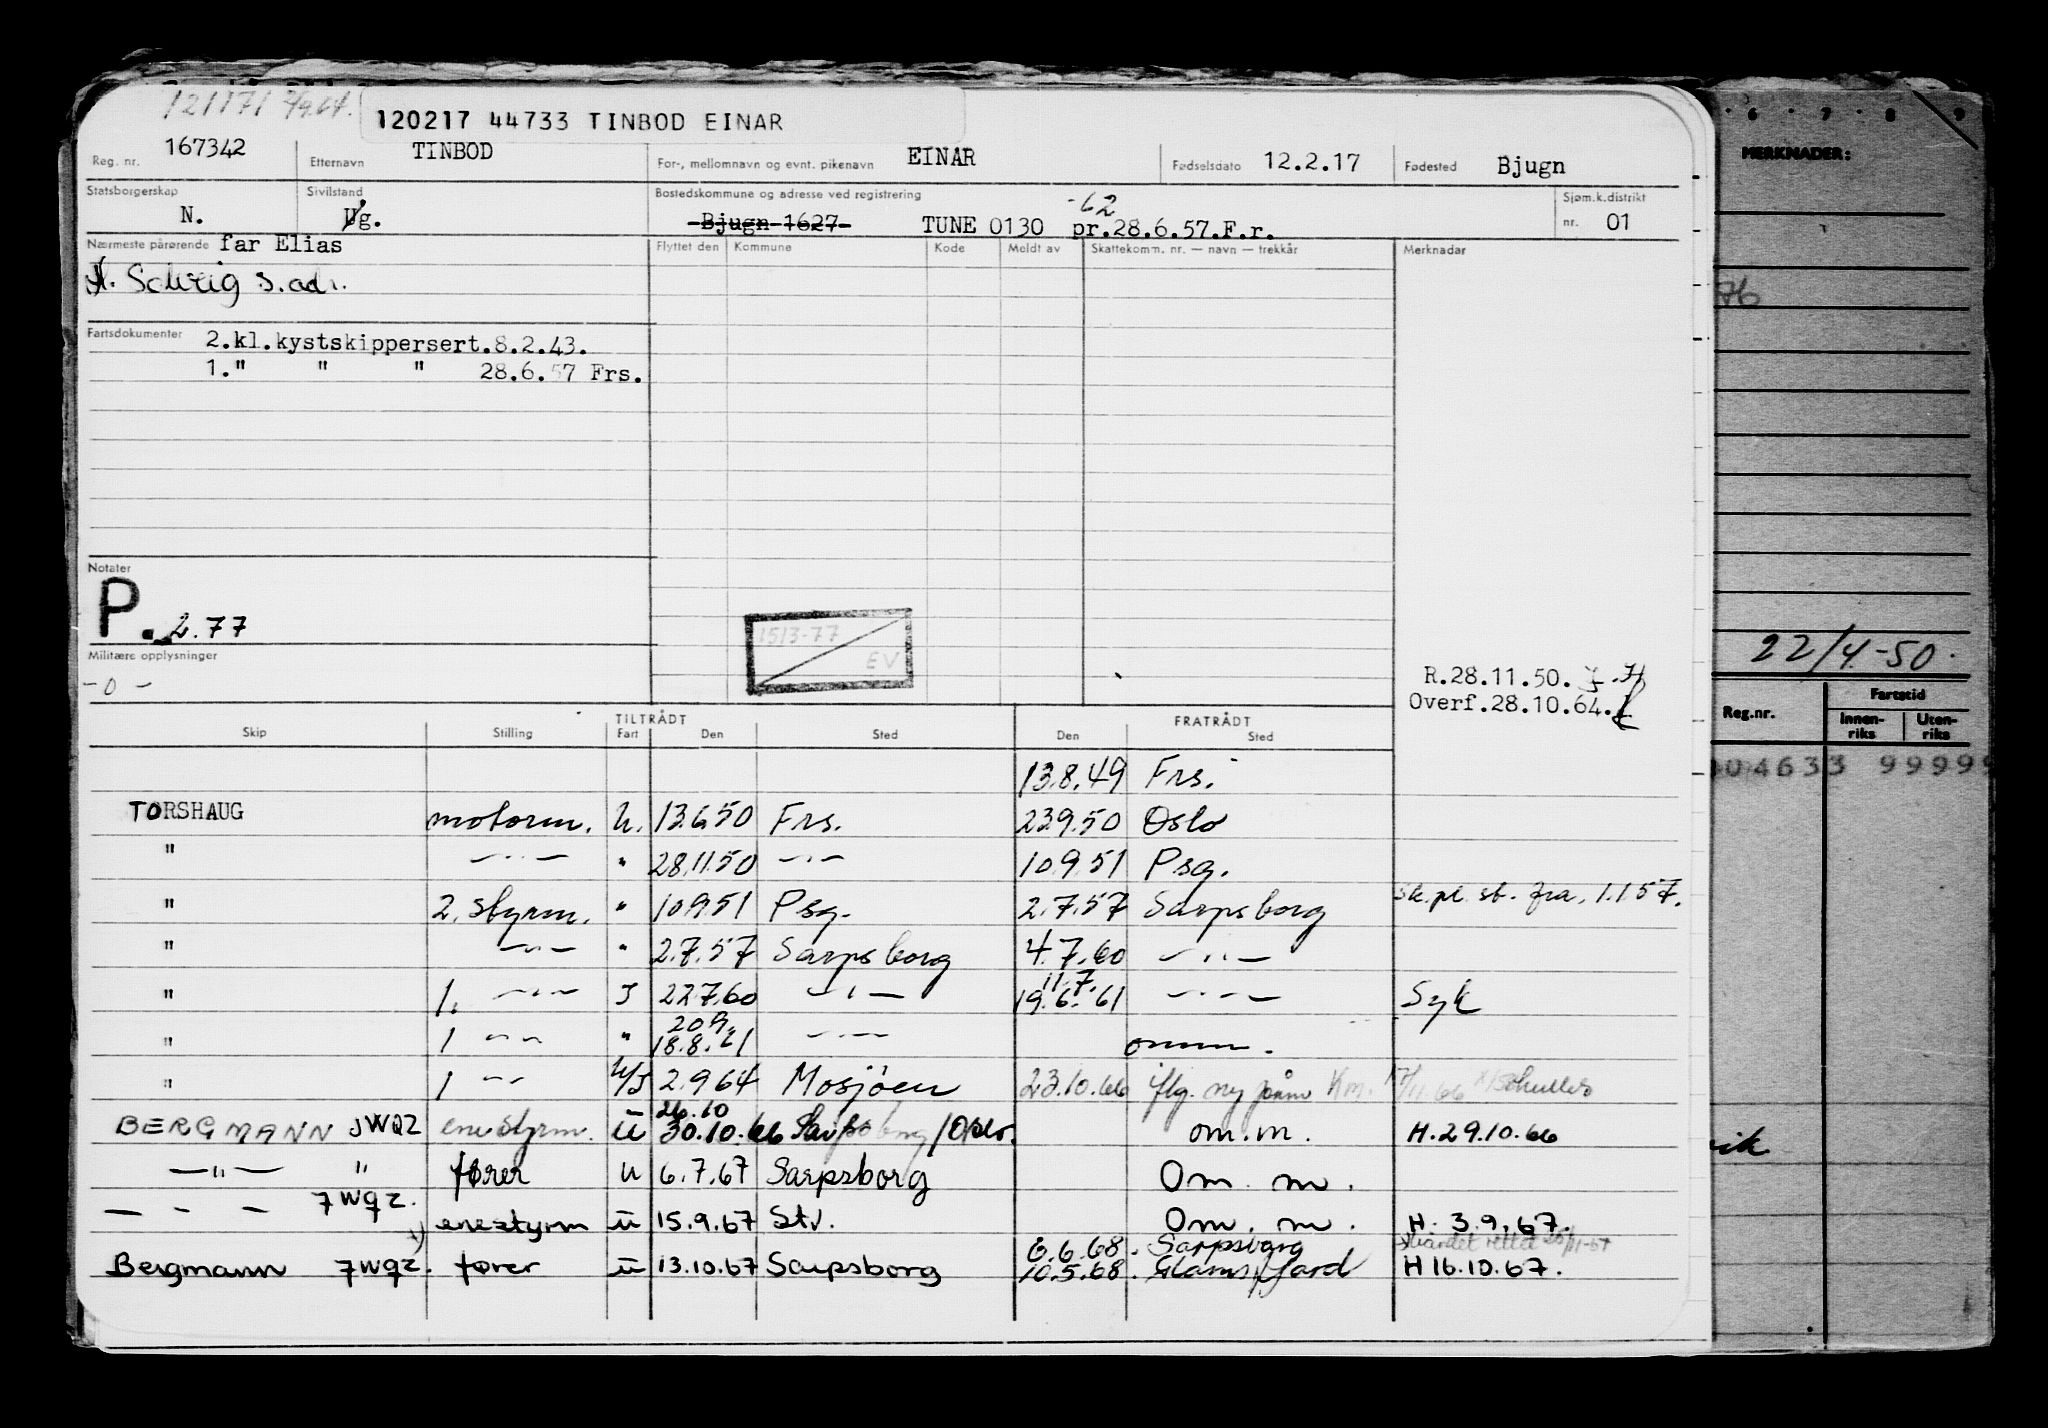 121171 2/9.64.
120217 44733 TINBOD EINAR
Reg. nr. 167342 Etternavn TINBOD For-, mellomnavn og evnt. pikenavn EINAR Fødselsdato 12.2.17 Fødested Bjugn
Statsborgerskap N. Sivilstand Ug. Bostedskommune og adresse ved registrering Bjugn 1627 TUNE 0130 -62 pr.28.6.57.F.r. Sjøm.k.distrikt nr. 01
Nærmeste pårørende far Elias Flyttet den Kommune Kode Meldt av Skattekomm. nr. — navn — trekkår Merknader
H. Solveig s.adr.
Fartsdokumenter 2.kl.kystskippersert.8.2.43.
1." " " 28.6.57 Frs.
Notater
P. 2.77
1513-77
EV
Militære opplysninger
- 0 -
R.28.11.50.
Overf.28.10.64.
TILTRÅDT FRATRÅDT
Skip Stilling Fart Den Sted Den Sted
13.8.49 Frs.
TORSHAUG motorm. U. 13.6.50 Frs. 23.9.50 Oslo
" —"— " 28.11.50 —"— 10.9.51 Psg.
" 2. styrm. " 10.9.51 Psg. 2.7.57 Sarpsborg Sk.pl. st. fra. 1.1.57.
" —"— " 2.7.57 Sarpsborg 4.7.60 —"—
" 1. —"— I 22.7.60 —"— 11.7. 19.6.61 —"— Syk
" 1 —"— " 20.9. 18.8.61 —"— omm.
" 1 —"— U/I 2.9.64 Mosjøen 23.10.66 iflg. ny
BERGMANN JWQZ enestyrm. U 26.10 30.10.66 Sarpsborg/Oslo. om.m. H.29.10.66
—"— " fører U 6.7.67 Sarpsborg Om. m.
— - — JWQZ. enestyrm U 15.9.67 Stv. Om. m. H. 3.9.67.
Bergmann JWQZ. fører U 13.10.67 Sarpsborg 6.6.68. Sarpsborg 10.5.68. Glomfjord H 16.10.67.
6 7 8 9
MERKNADER:
76
22/4-50.
Reg.nr. Fartstid
Innen-riks Uten-riks
04633 99999
vik